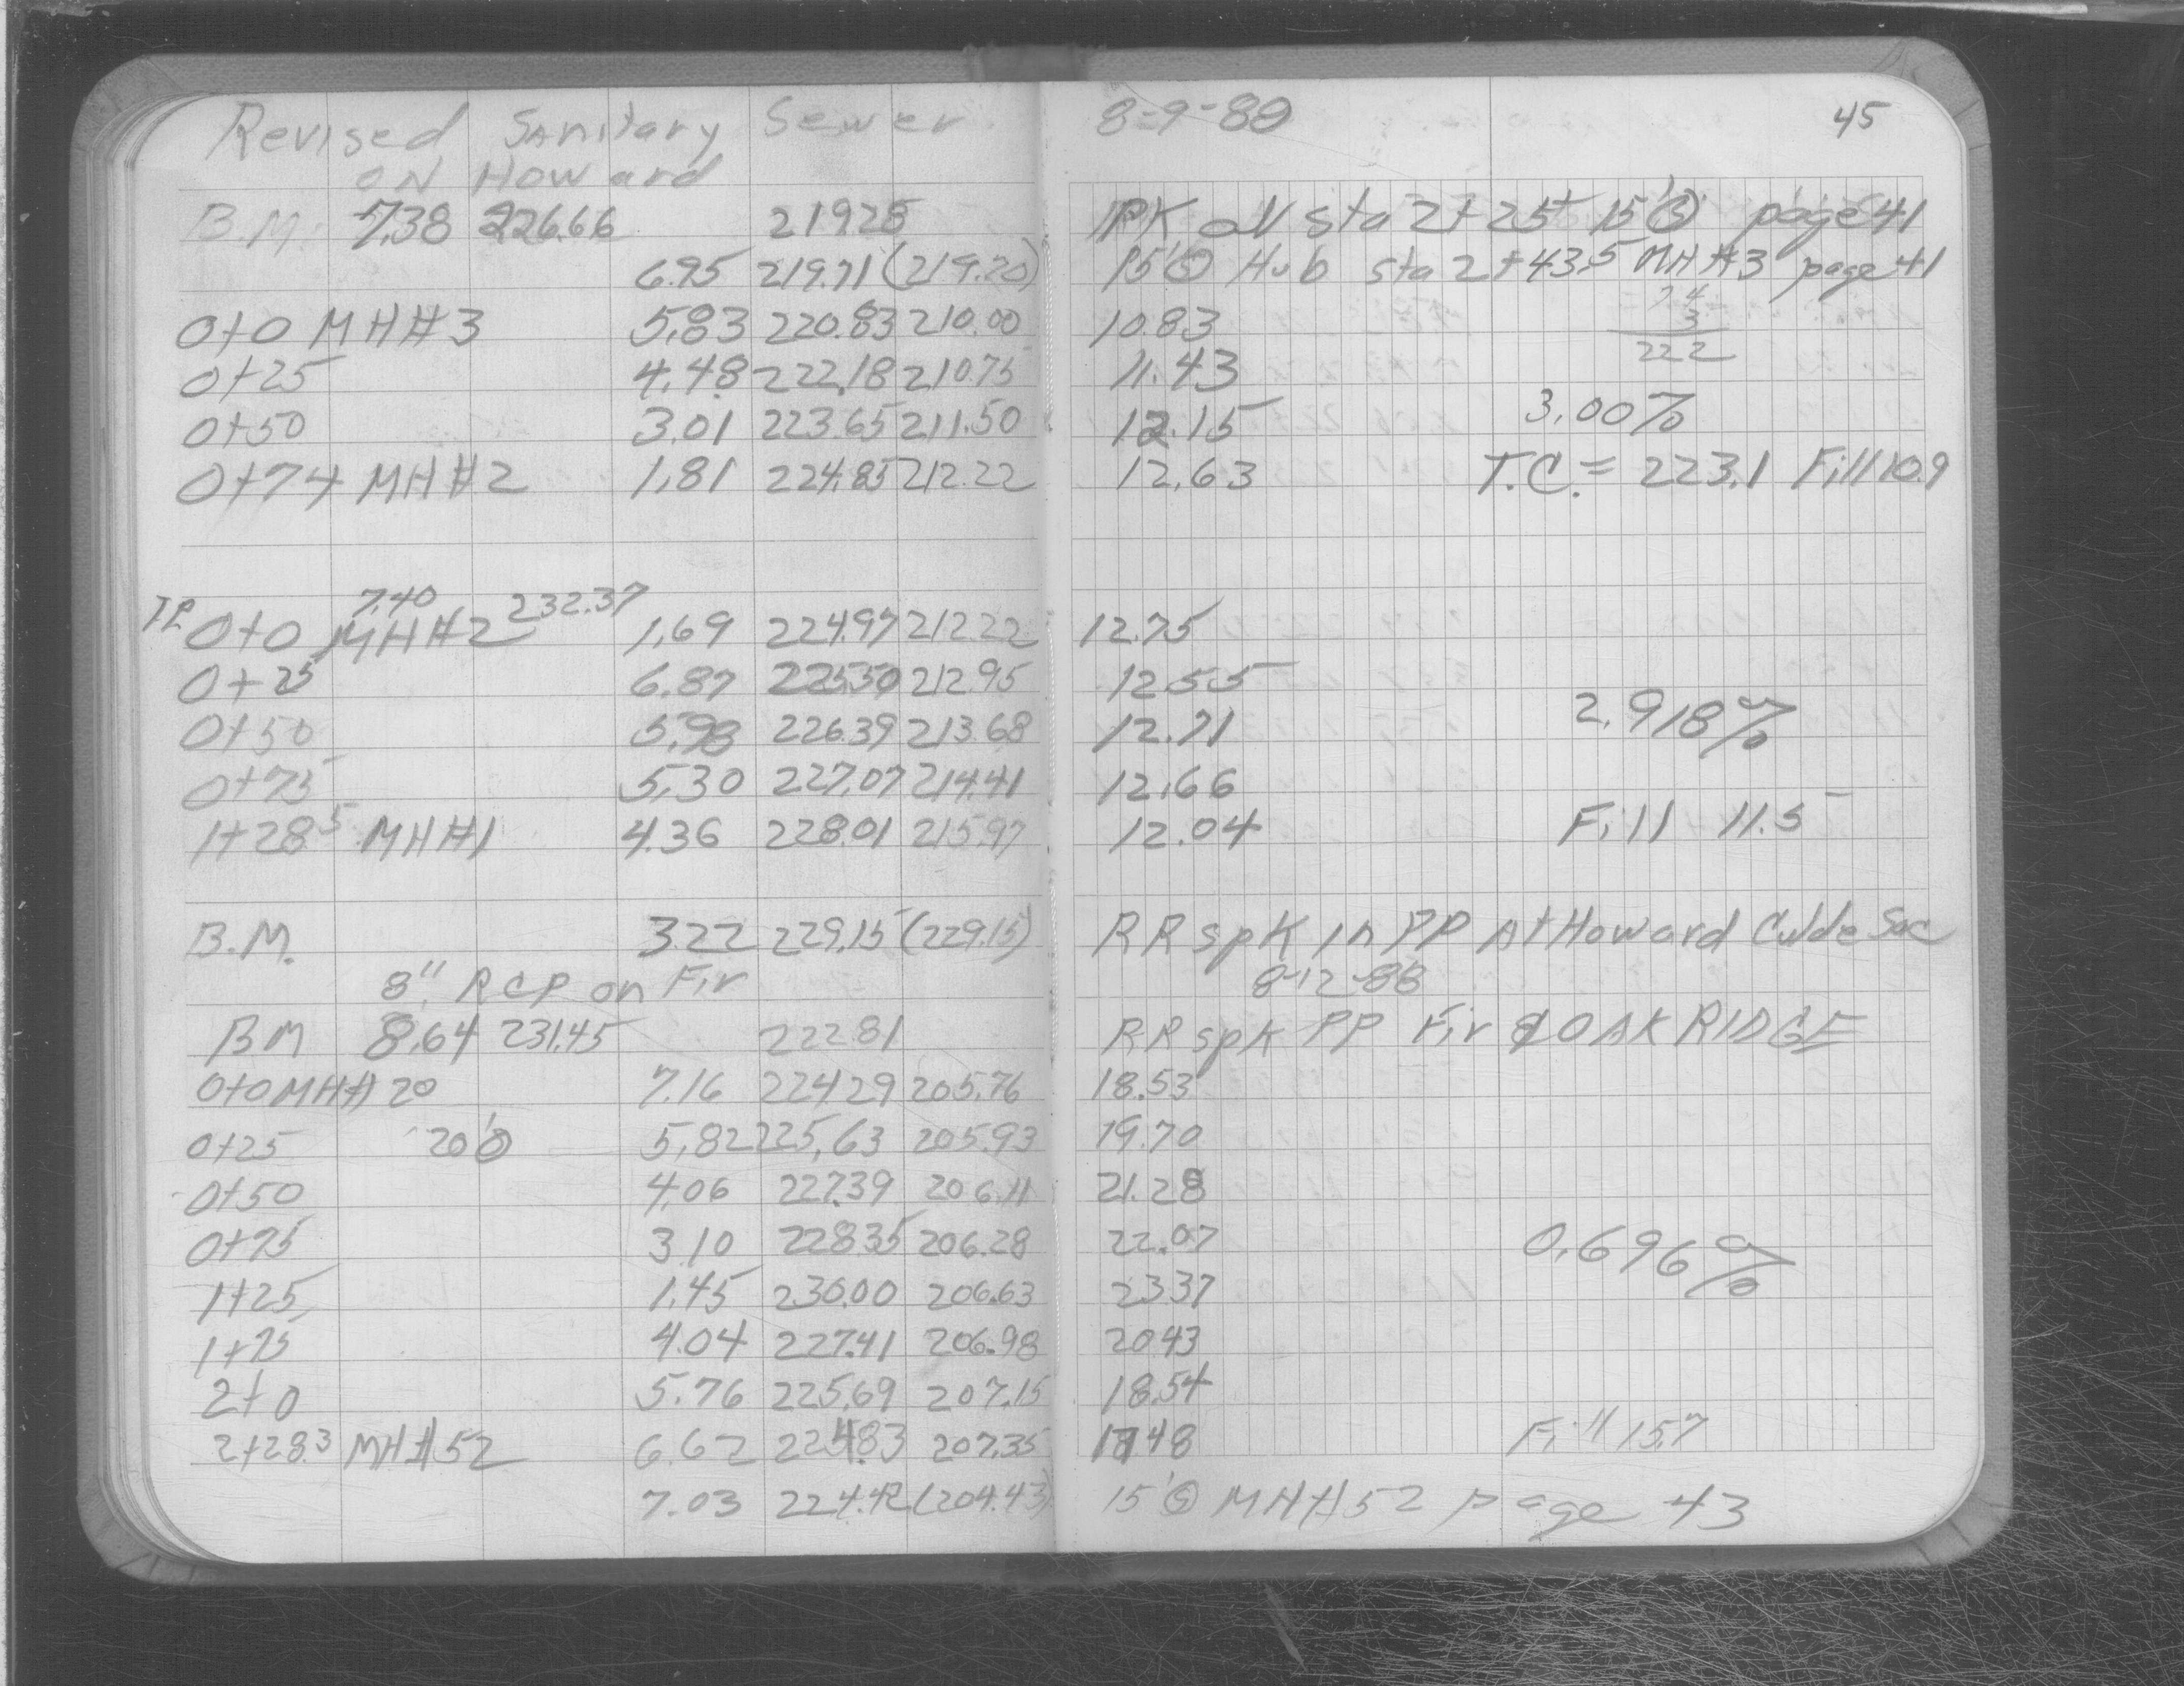 Revised Sanitary Sewer 8-9-88 45
ON Howard
B.M. 7.38 226.66 219.28 PK ON Sta 2+25 15' page 41
6.95 219.71 (219.70) 15' Hub Sta 2+43.5 MH#3 page 41
0+0 MH#3 5.83 220.83 210.00 10.83 74
3
222
0+25 4.48 222.18 210.75 11.43
0+50 3.01 223.65 211.50 12.15 3.00%
0+74 MH#2 1.81 224.85 212.22 12.63 T.C. = 223.1 Fill 10.9
7.40 232.37
TP 0+0 MH#2 1.69 224.97 212.22 12.75
0+25 6.87 225.50 212.95 12.55
0+50 5.98 226.39 213.68 12.71 2.918%
0+75 5.30 227.07 214.41 12.66
1+28.5 MH#1 4.36 228.01 215.97 12.04 Fill 11.5
B.M. 3.22 229.15 (229.15) RR spk in PP At Howard Culde Sac
8" RCP on Fir 8-12-88
BM 8.64 231.45 222.81 RR spk PP Fir & OAK RIDGE
0+0 MH# 20 7.16 224.29 205.76 18.53
0+25 20' 5.82 225.63 205.93 19.70
0+50 4.06 227.39 206.11 21.28
0+75 3.10 228.35 206.28 22.07 0.696%
1+25 1.45 230.00 206.63 23.37
1+75 4.04 227.41 206.98 20.43
2+0 5.76 225.69 207.15 18.54
2+28.3 MH#52 6.62 224.83 207.35 17.48 Fill 15.7
7.03 224.42 (204.43) 15' MH#52 page 43